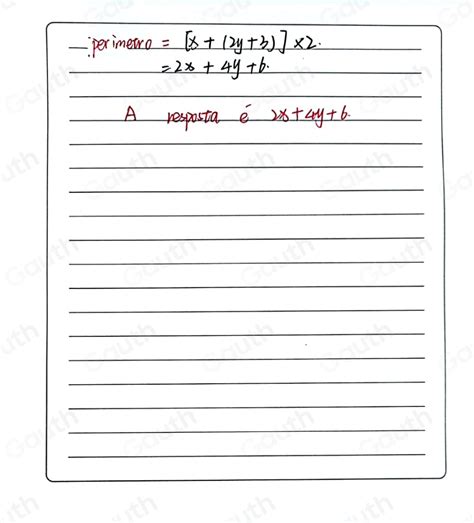 perimetro = [x + (2y+3)] ×2.
=2x + 4y +6.
A resposta é 2x+4y+6.